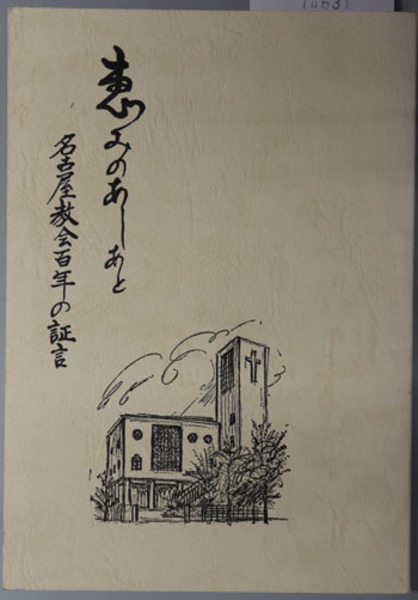 恵みのあしあと
名古屋教会百年の証言